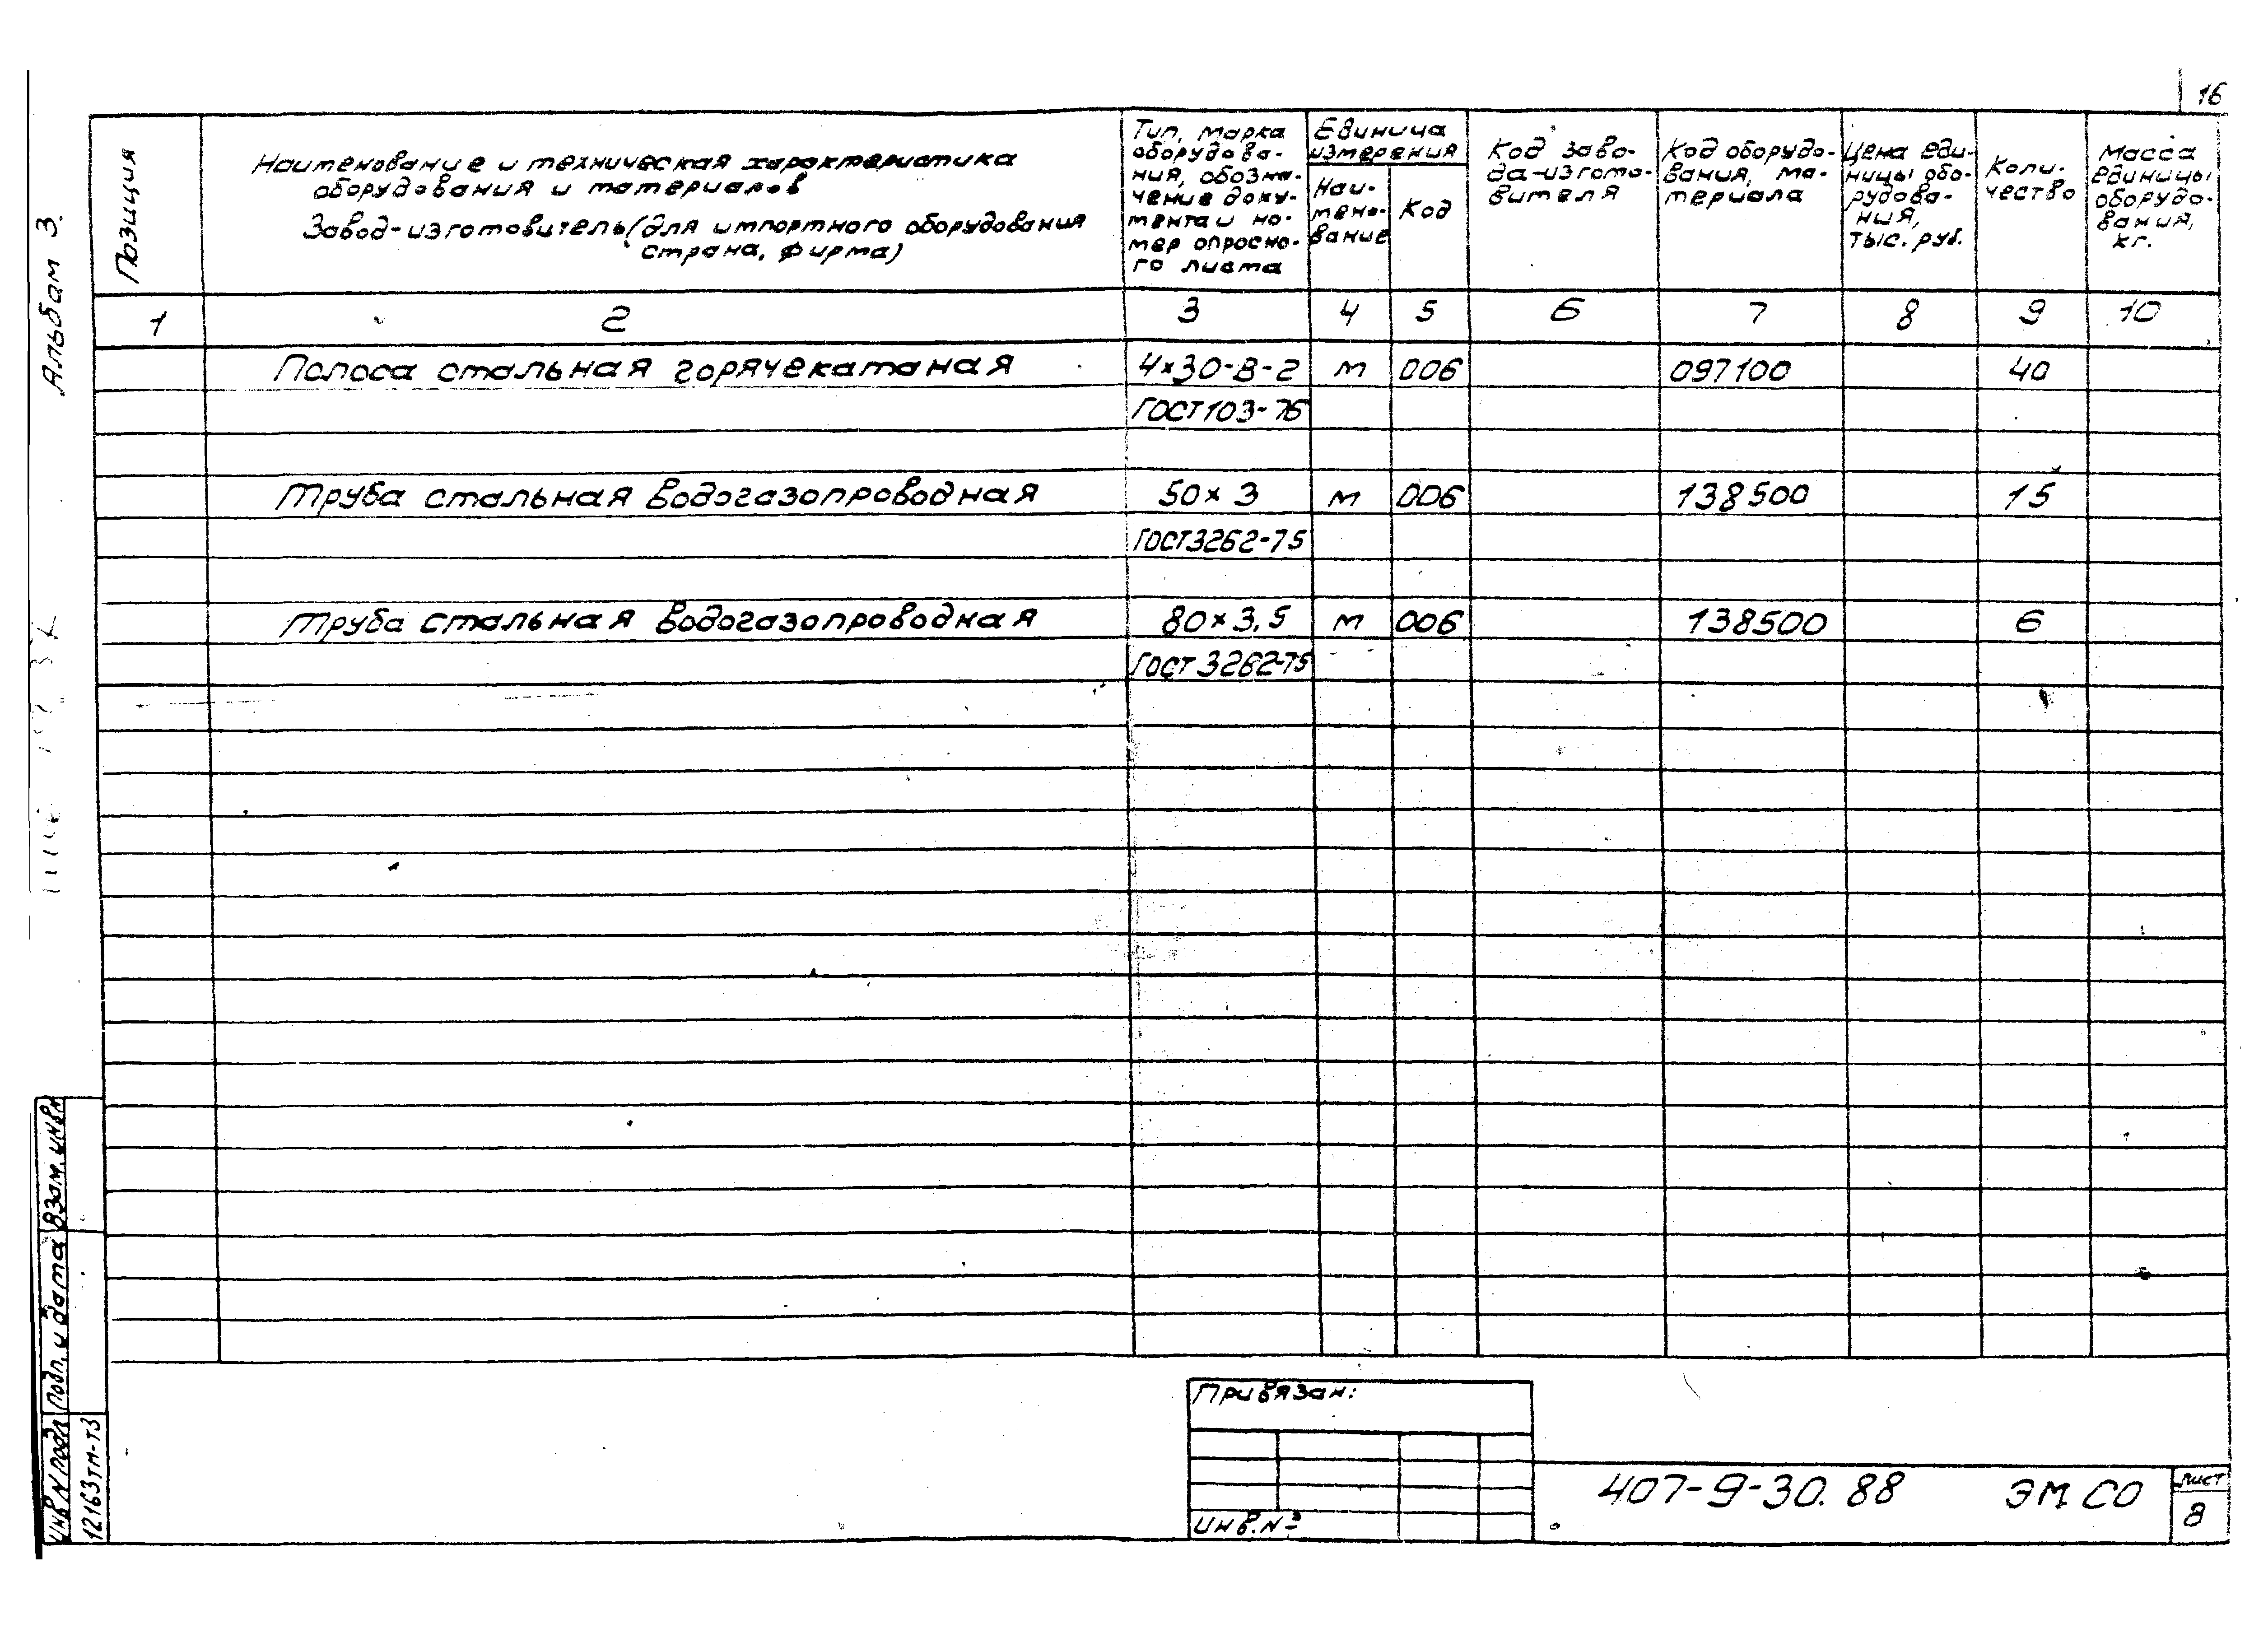 16
Альбом 3.
Позиция
Наименование и техническая характеристика
оборудования и материалов
Завод-изготовитель (для импортного оборудования
страна, фирма)
Тип, марка
оборудова-
ния, обозна-
чение доку-
мента и но-
мер опросно-
го листа
Единица
измерения
Наи-
мено-
вание
Код
Код заво-
да-изгото-
вителя
Код оборудо-
вания, ма-
териала
Цена еди-
ницы обо-
рудова-
ния,
тыс. руб.
Коли-
чество
Масса
единицы
оборудо-
вания,
кг.
1 2 3 4 5 6 7 8 9 10
Полоса стальная горячекатаная 4×30-В-2 м 006 097100 40
ГОСТ 103-76
Труба стальная водогазопроводная 50×3 м 006 138500 15
ГОСТ 3262-75
Труба стальная водогазопроводная 80×3,5 м 006 138500 6
ГОСТ 3262-75
Взам. инв №
Подп. и дата
Инв № подл
12163тм-т3
Привязан:
Инв. №
407-9-30.88 ЭМ.СО
Лист
8